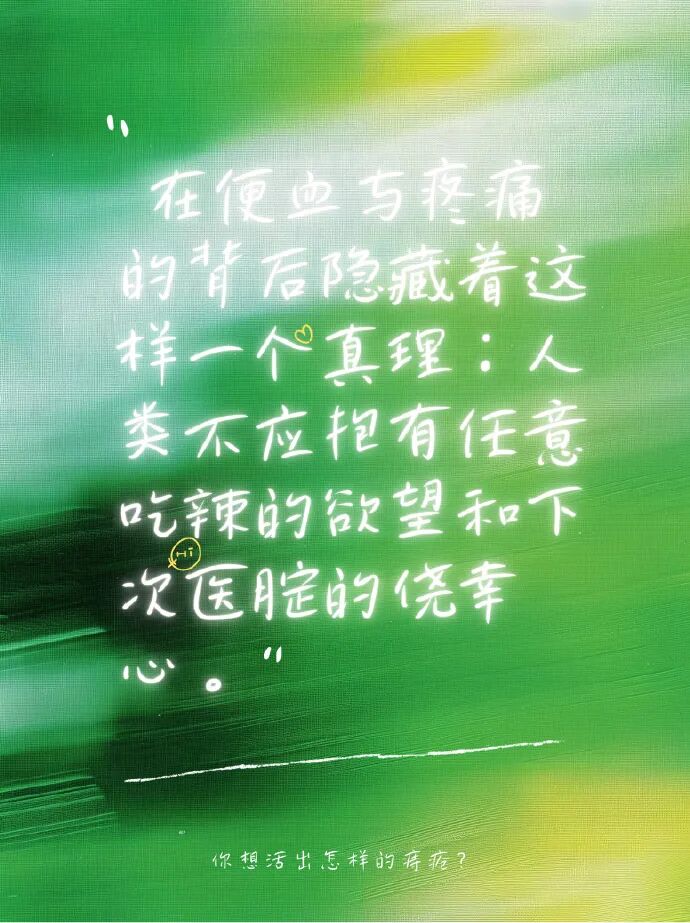 "
在便血与疼痛
的背后隐藏着这
样一个真理：人
类不应抱有任意
吃辣的欲望和下
次医腚的侥幸
心。"
Hi
你想活出怎样的痔疮？